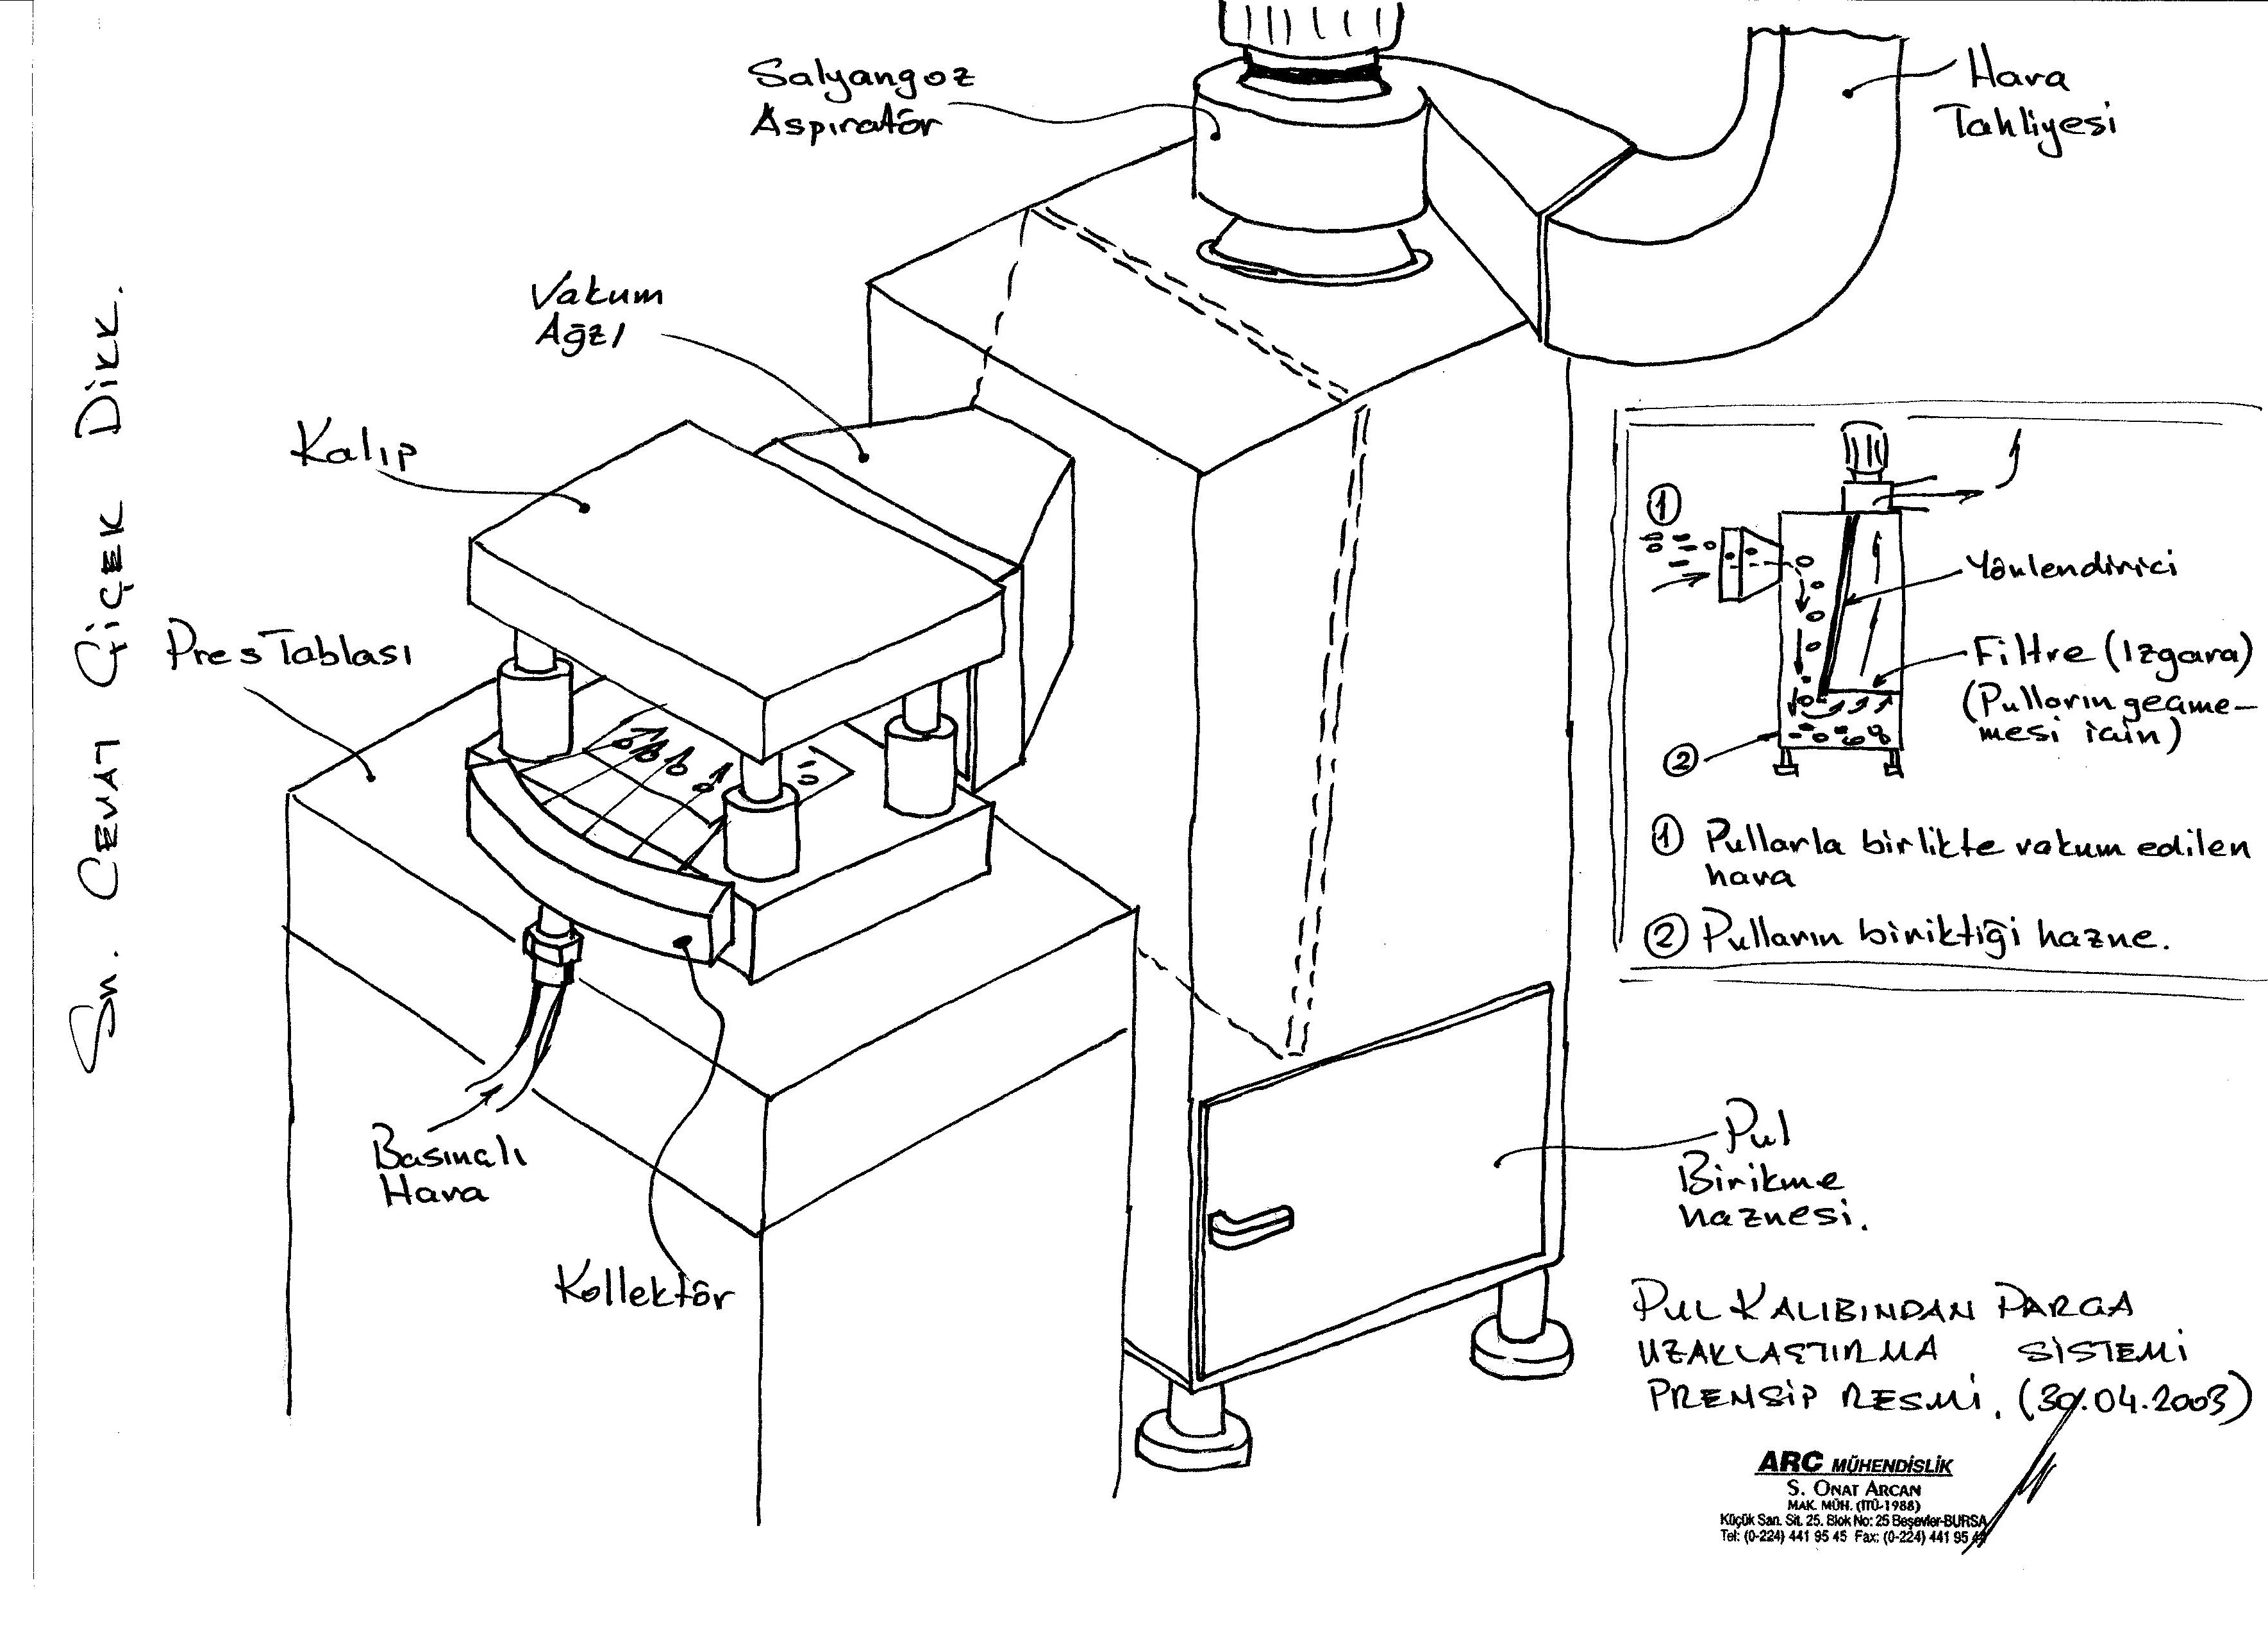 Sn. CEVAT ÇİÇEK DİKK.
Salyangoz
Aspiratör
Hava
Tahliyesi
Vakum
Ağzı
Kalıp
Pres Tablası
Basınçlı
Hava
Kollektör
1
Yönlendirici
Filtre (Izgara)
(Pulların geçme-
mesi için)
2
1 Pullarla birlikte vakum edilen
hava
2 Pulların biriktiği hazne.
Pul
Birikme
haznesi.
PUL KALIBINDAN PARÇA
UZAKLAŞTIRMA SİSTEMİ
PRENSİP RESMİ. (30.04.2003)
ARC MÜHENDİSLİK
S. ONAT ARCAN
MAK. MÜH. (İTÜ-1988)
Küçük San. Sit. 25. Blok No: 25 Beşevler-BURSA
Tel: (0-224) 441 95 45 Fax: (0-224) 441 95